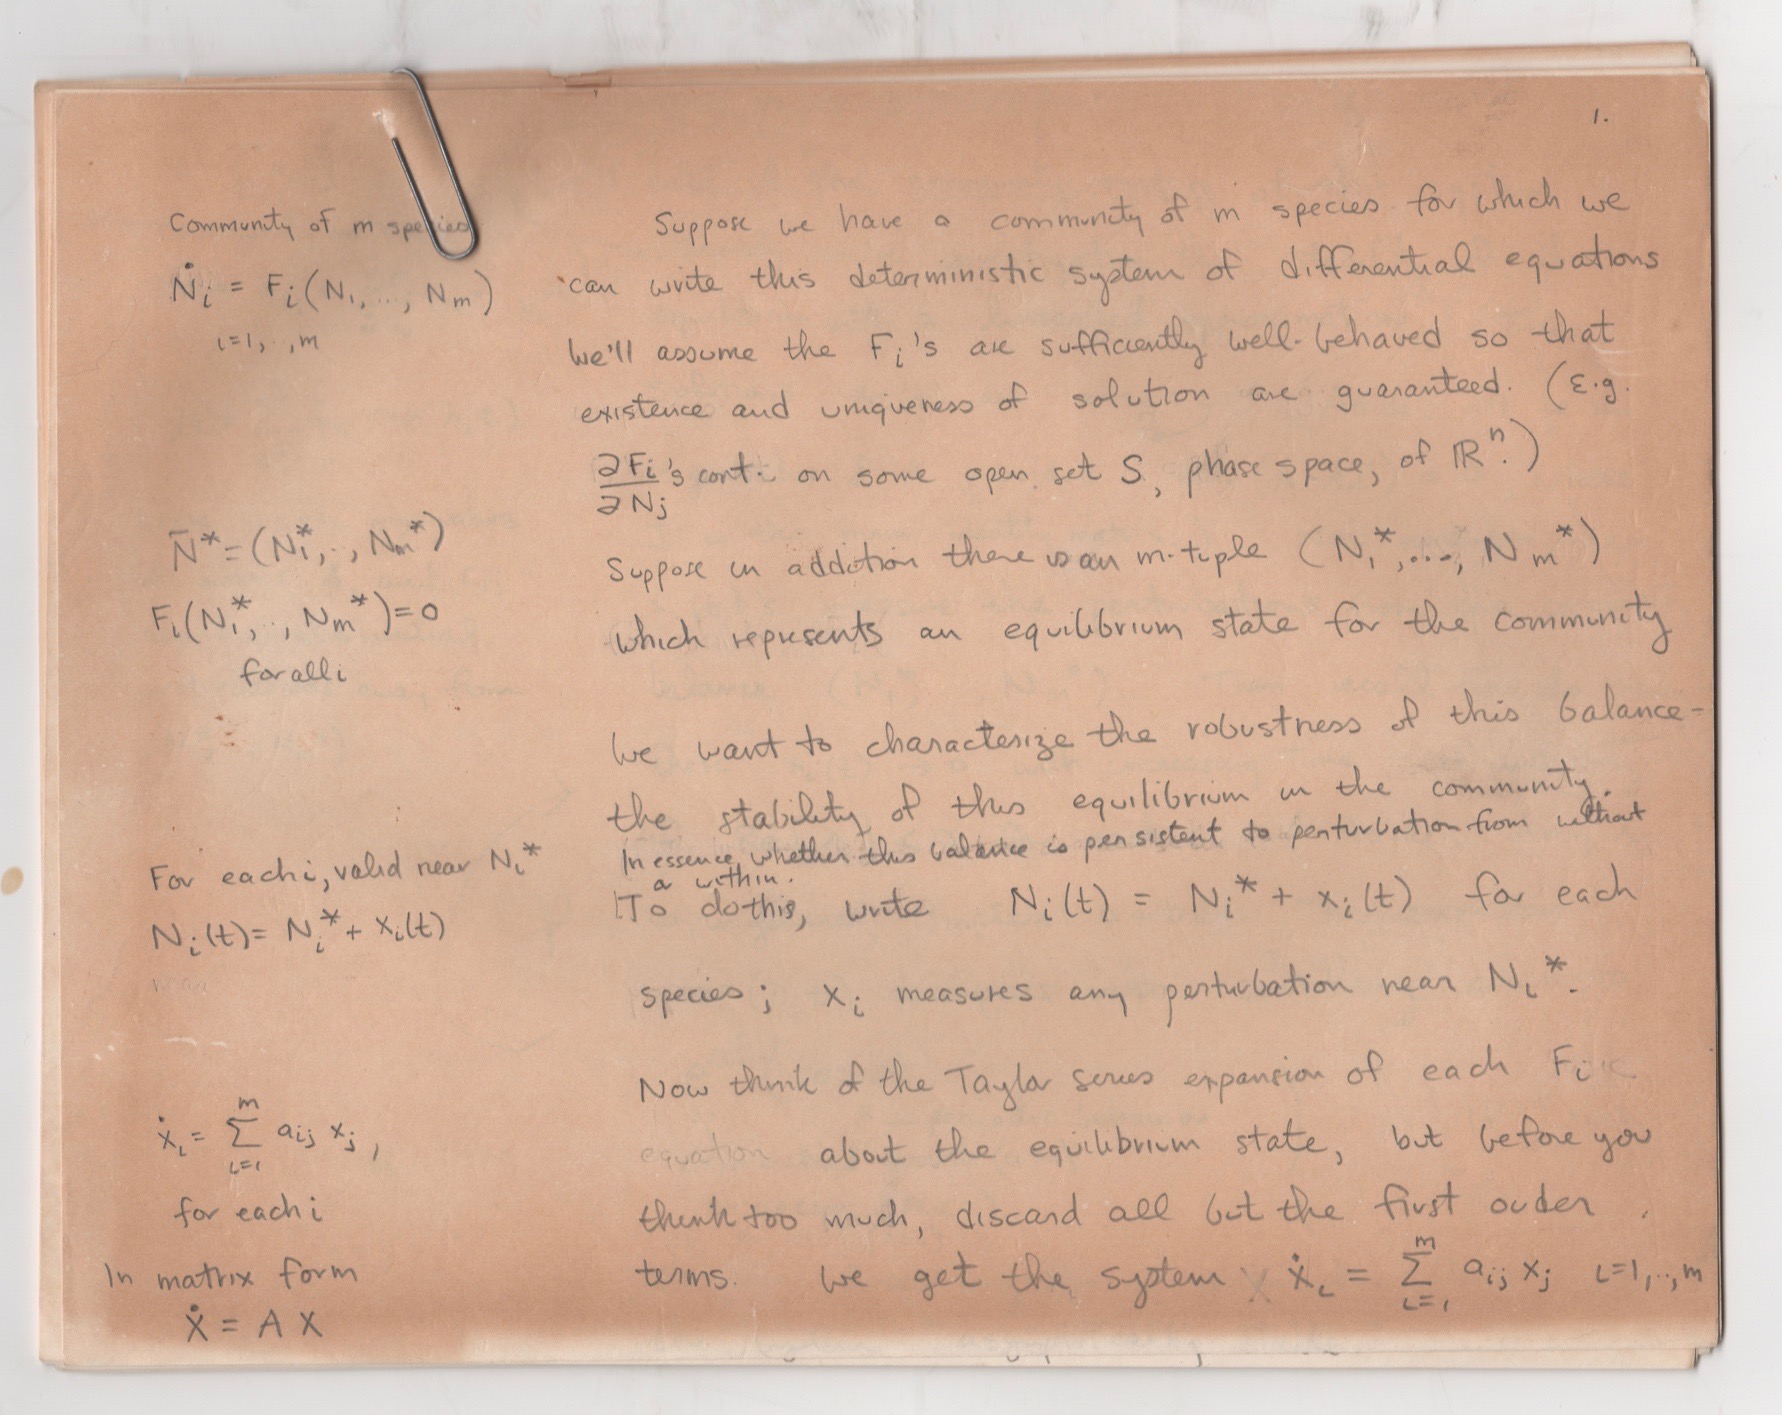 1.
Community of m species
Ṅi = Fi(N1, .., Nm)
i=1, ., m
N̄* = (N1*, ., Nm*)
Fi(N1*, ., Nm*) = 0
for all i
For each i, valid near Ni*
Ni(t) = Ni* + xi(t)
near
ẋi = Σ_{i=1}^{m} aij xj ,
for each i
In matrix form
Ẋ = A X
Suppose we have a community of m species for which we
can write this deterministic system of differential equations
We'll assume the Fi's are sufficiently well-behaved so that
existence and uniqueness of solution are guaranteed. (E.g.
∂Fi/∂Nj 's cont. on some open set S, phase space, of ℝⁿ.)
Suppose in addition there is an m-tuple (N1*, ..., Nm*)
which represents an equilibrium state for the community
We want to characterize the robustness of this balance -
the stability of this equilibrium in the community.
In essence, whether this balance is persistent to perturbation from without
or within.
To do this, write Ni(t) = Ni* + xi(t) for each
species; xi measures any perturbation near Ni*.
Now think of the Taylor series expansion of each Fi
equation about the equilibrium state, but before you
think too much, discard all but the first order
terms. We get the system ẋi = Σ_{i=1}^{m} aij xj i=1, ., m